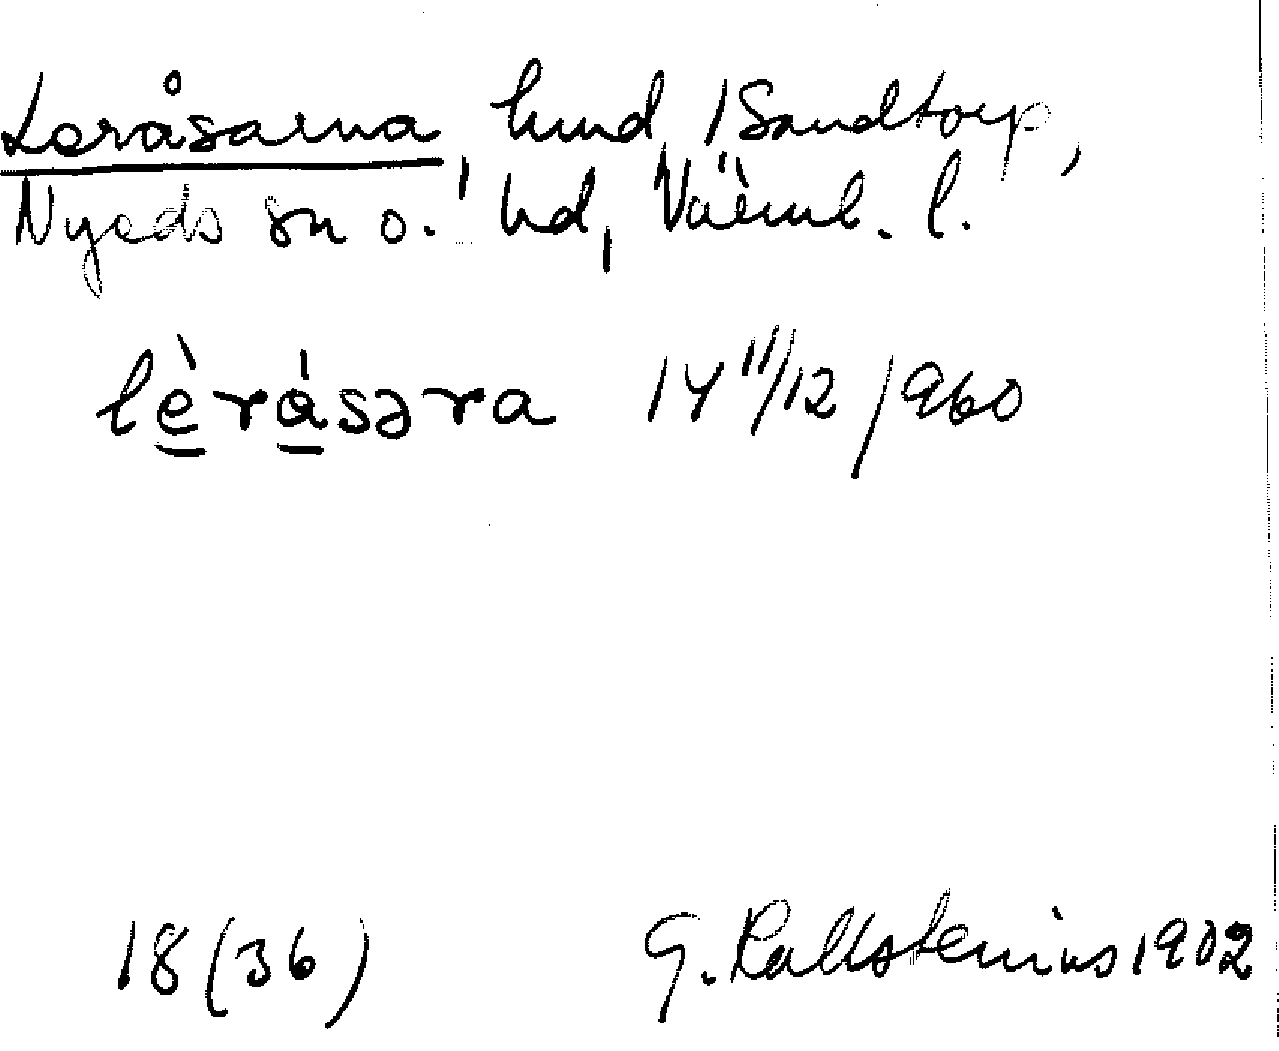 Leråsarna, hmd, /Sandtorp,
Nyeds sn o. hd, Värml. l.
lèrásəra 14 11/12 1960
18 (36) G. Kallstenius 1902